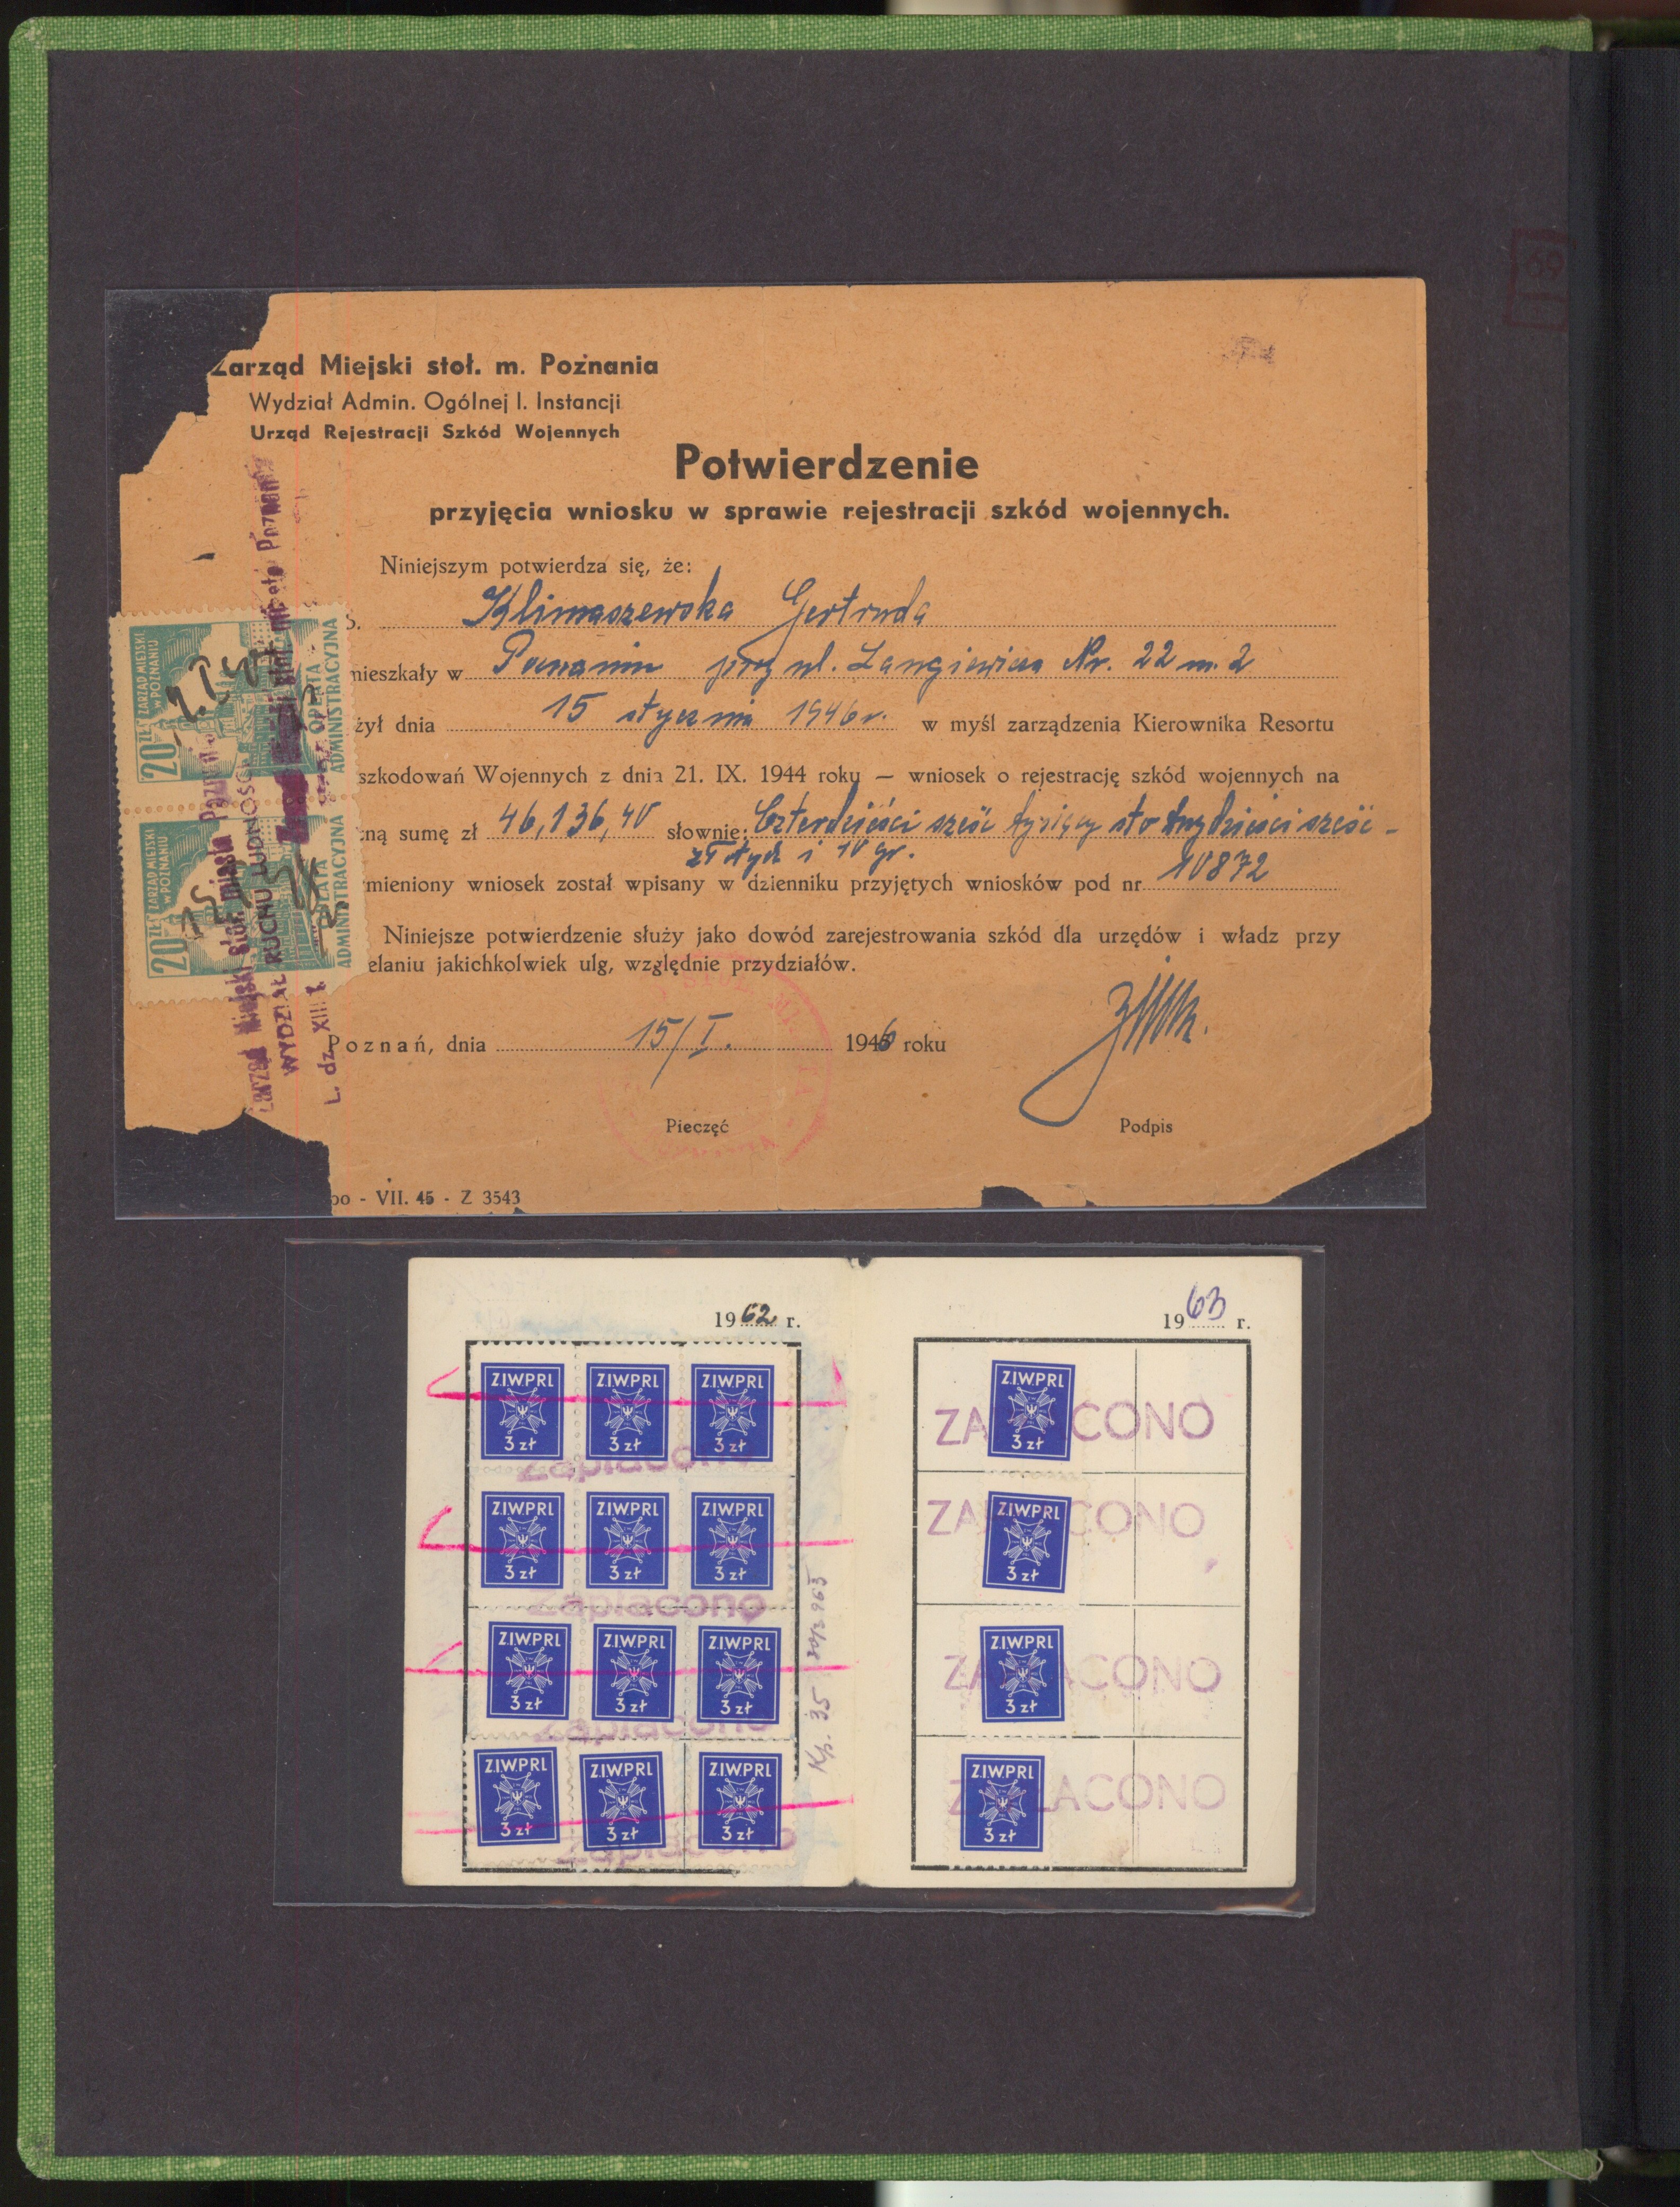 Zarząd Miejski stoł. m. Poznania
Wydział Admin. Ogólnej I. Instancji
Urząd Rejestracji Szkód Wojennych
Potwierdzenie
przyjęcia wniosku w sprawie rejestracji szkód wojennych.
Niniejszym potwierdza się, że:
Klimaszewska Gertruda
mieszkały w Poznaniu przy ul. Langiewicza Nr. 22 m. 2
żył dnia 15 stycznia 1946 r. w myśl zarządzenia Kierownika Resortu
szkodowań Wojennych z dnia 21. IX. 1944 roku — wniosek o rejestrację szkód wojennych na
zną sumę zł 46,136,40 słownie: Czterdzieści sześć tysięcy sto trzydzieści sześć -
złotych i 40 gr.
mieniony wniosek został wpisany w dzienniku przyjętych wniosków pod nr 10872
Niniejsze potwierdzenie służy jako dowód zarejestrowania szkód dla urzędów i władz przy
elaniu jakichkolwiek ulg, względnie przydziałów.
Poznań, dnia 15/I. 1946 roku
Pieczęć
Podpis
oo - VII. 45 - Z 3543
20 ZŁ ZARZĄD MIEJSKI W POZNANIU
OPŁATA ADMINISTRACYJNA
20 ZŁ ZARZĄD MIEJSKI W POZNANIU
OPŁATA ADMINISTRACYJNA
Zarząd Miejski stoł. miasta Poznania
WYDZIAŁ RUCHU LUDNOŚCI
L. dz. XIII
69
1962 r.
Z.I.W.PRL Z.I.W.PRL Z.I.W.PRL
3 zł 3 zł 3 zł
Zapłacono
Z.I.W.PRL Z.I.W.PRL Z.I.W.PRL
3 zł 3 zł 3 zł
Zapłacono
Z.I.W.PRL Z.I.W.PRL Z.I.W.PRL
3 zł 3 zł 3 zł
Zapłacono
Z.I.W.PRL Z.I.W.PRL Z.I.W.PRL
3 zł 3 zł 3 zł
Zapłacono
Kp. 35
1963 r.
Z.I.W.PRL
ZAPŁACONO
3 zł
Z.I.W.PRL
ZAPŁACONO
3 zł
Z.I.W.PRL
ZAPŁACONO
3 zł
Z.I.W.PRL
ZAPŁACONO
3 zł